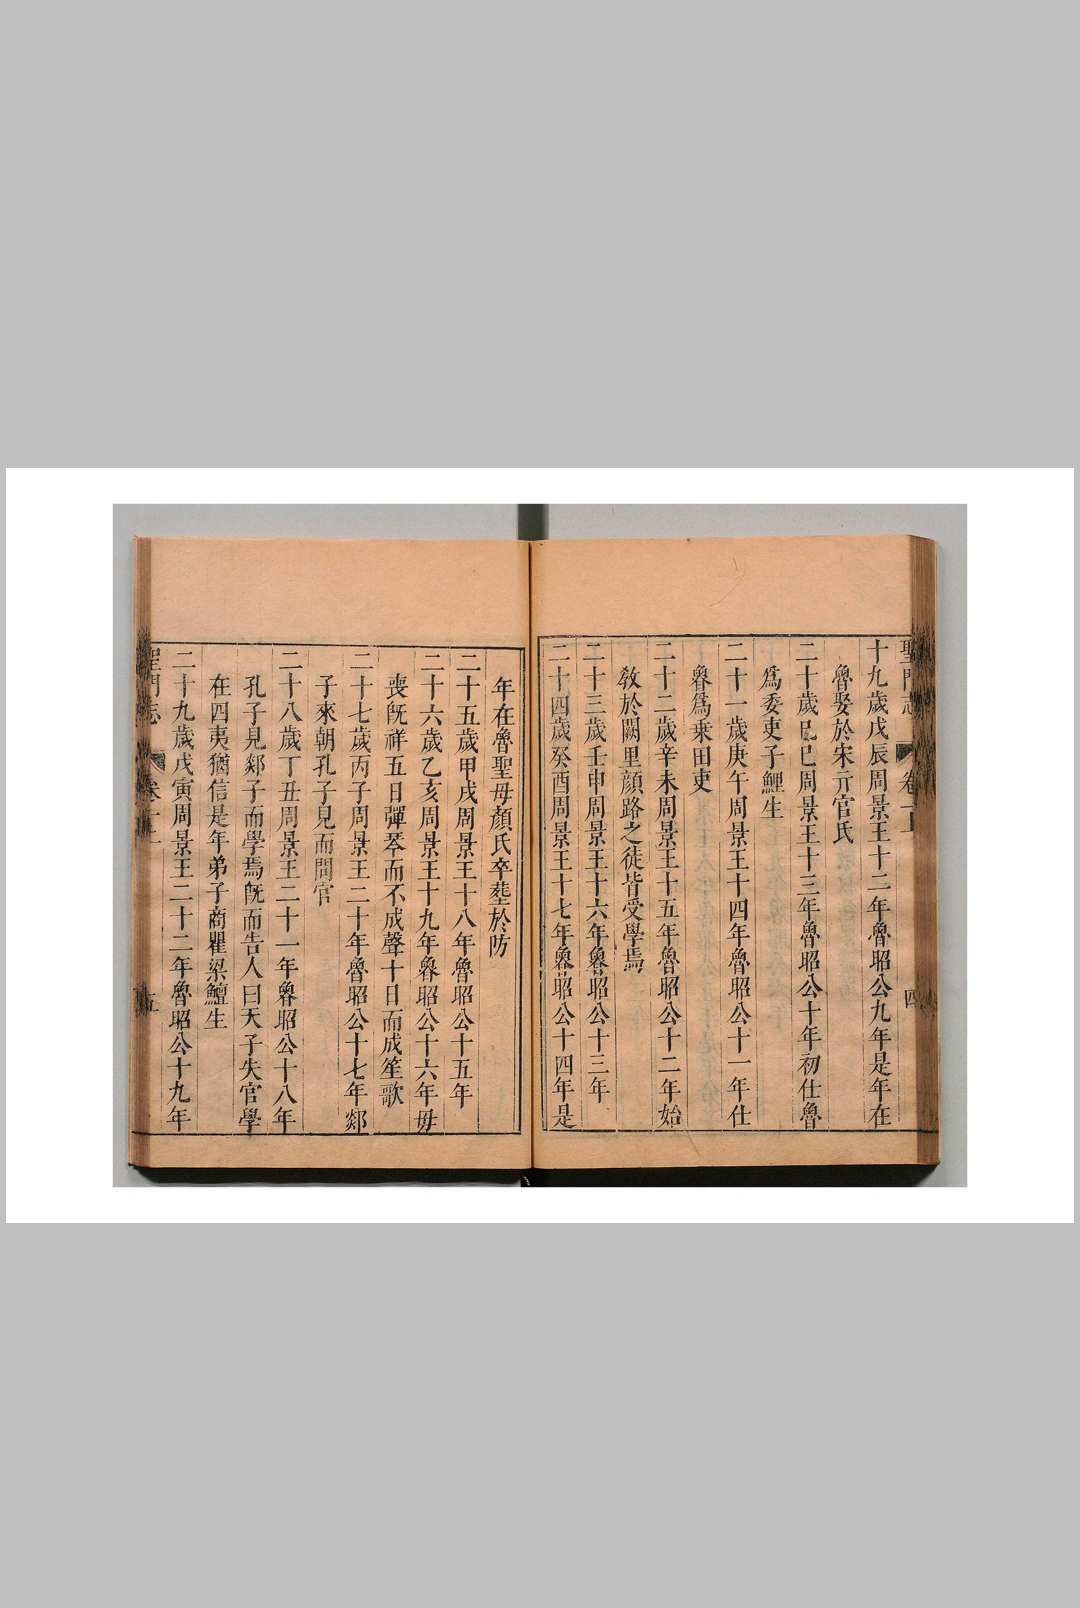 聖門志 卷一上 四
十九歲戊辰周景王十二年魯昭公九年是年在
魯娶於宋亓官氏
二十歲己巳周景王十三年魯昭公十年初仕魯
爲委吏子鯉生
二十一歲庚午周景王十四年魯昭公十一年仕
魯爲乗田吏
二十二歲辛未周景王十五年魯昭公十二年始
敎於闕里顏路之徒皆受學焉
二十三歲壬申周景王十六年魯昭公十三年
二十四歲癸酉周景王十七年魯昭公十四年是
年在魯聖母顏氏卒塟於防
二十五歲甲戌周景王十八年魯昭公十五年
二十六歲乙亥周景王十九年魯昭公十六年母
喪旣祥五日彈琴而不成聲十日而成笙歌
二十七歲丙子周景王二十年魯昭公十七年郯
子來朝孔子見而問官
二十八歲丁丑周景王二十一年魯昭公十八年
孔子見郯子而學焉旣而告人曰天子失官學
在四夷猶信是年弟子商瞿梁鱣生
二十九歲戊寅周景王二十二年魯昭公十九年
聖門志 卷一上 五